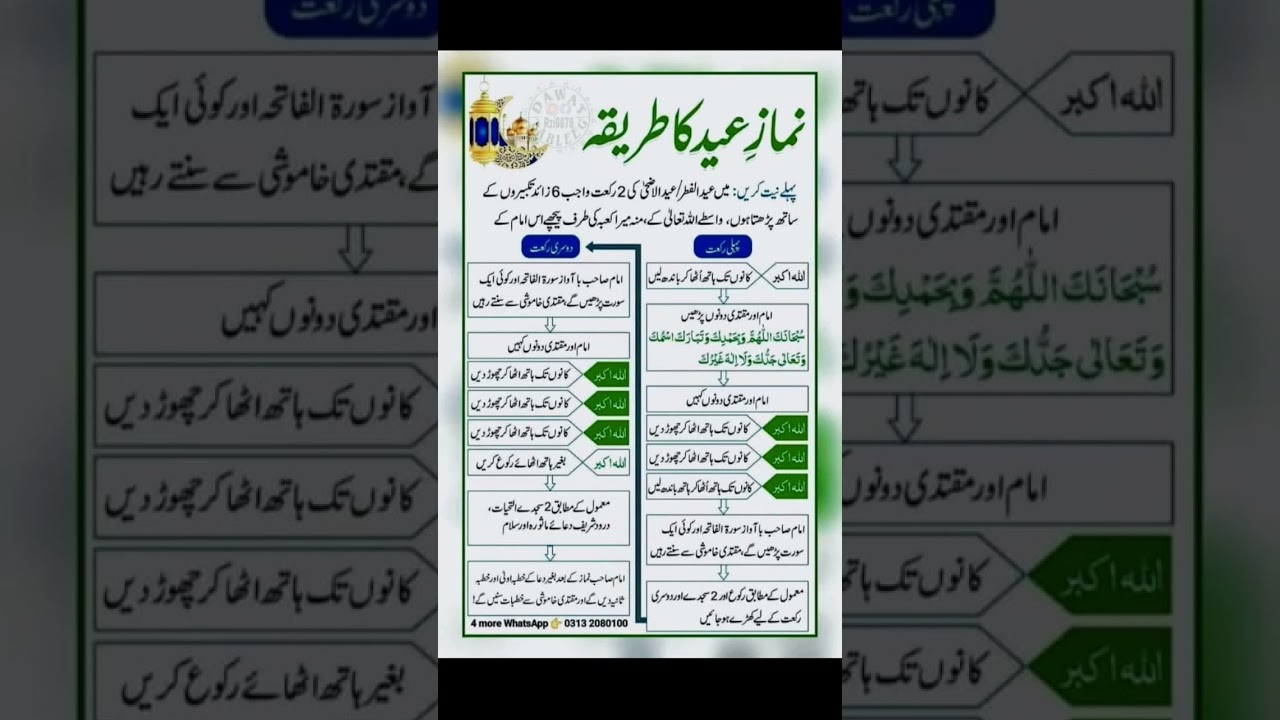 نمازِ عید کا طریقہ
پہلے نیت کریں: میں عید الفطر/عید الاضحیٰ کی 2 رکعت واجب 6 زائد تکبیروں کے
ساتھ پڑھتا ہوں، واسطے اللہ تعالیٰ کے، منہ میرا کعبہ کی طرف پیچھے اس امام کے
پہلی رکعت
اللہ اکبر
کانوں تک ہاتھ اُٹھا کر باندھ لیں
امام اور مقتدی دونوں پڑھیں
سُبْحَانَكَ اللّٰهُمَّ وَبِحَمْدِكَ وَتَبَارَكَ اسْمُكَ
وَتَعَالٰى جَدُّكَ وَلَا اِلٰهَ غَيْرُكَ
امام اور مقتدی دونوں کہیں
اللہ اکبر
کانوں تک ہاتھ اٹھا کر چھوڑ دیں
اللہ اکبر
کانوں تک ہاتھ اٹھا کر چھوڑ دیں
اللہ اکبر
کانوں تک ہاتھ اُٹھا کر ہاتھ باندھ لیں
امام صاحب با آواز سورۃ الفاتحہ اور کوئی ایک
سورت پڑھیں گے، مقتدی خاموشی سے سنتے رہیں
معمول کے مطابق رکوع اور 2 سجدے اور دوسری
رکعت کے لیے کھڑے ہو جائیں
دوسری رکعت
امام صاحب با آواز سورۃ الفاتحہ اور کوئی ایک
سورت پڑھیں گے، مقتدی خاموشی سے سنتے رہیں
امام اور مقتدی دونوں کہیں
اللہ اکبر
کانوں تک ہاتھ اٹھا کر چھوڑ دیں
اللہ اکبر
کانوں تک ہاتھ اٹھا کر چھوڑ دیں
اللہ اکبر
کانوں تک ہاتھ اٹھا کر چھوڑ دیں
اللہ اکبر
بغیر ہاتھ اٹھائے رکوع کریں
معمول کے مطابق 2 سجدے التحیات،
درود شریف دعائے ماثورہ اور سلام
امام صاحب نماز کے بعد بغیر دعا کے خطبہ اولیٰ اور خطبہ
ثانیہ دیں گے اور مقتدی خاموشی سے خطبات سنیں گے!
4 more WhatsApp 👉 0313 2080100